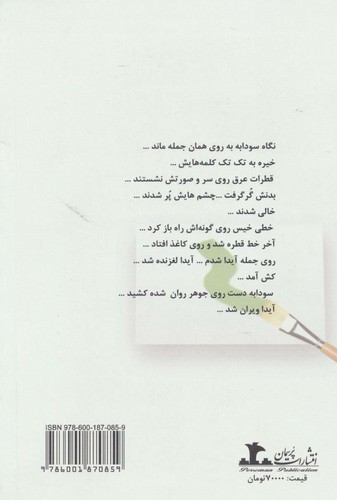 نگاه سودابه به روی همان جمله ماند ...
خیره به تک تک کلمه‌هایش ...
قطرات عرق روی سر و صورتش نشستند ...
بدنش گُر گرفت ...چشم هایش پُر شدند ...
خالی شدند ...
خطی خیس روی گونه‌اش راه باز کرد ...
آخر خط قطره شد و روی کاغذ افتاد ...
روی جمله آیدا شدم ... آیدا لغزنده شد ...
کش آمد ...
سودابه دست روی جوهر روان شده کشید ...
آیدا ویران شد ...
ISBN 978-600-187-085-9
9 786001 870859
انتشارات پُرسمان
Porseman Publication
قیمت: ۷۰۰۰۰تومان